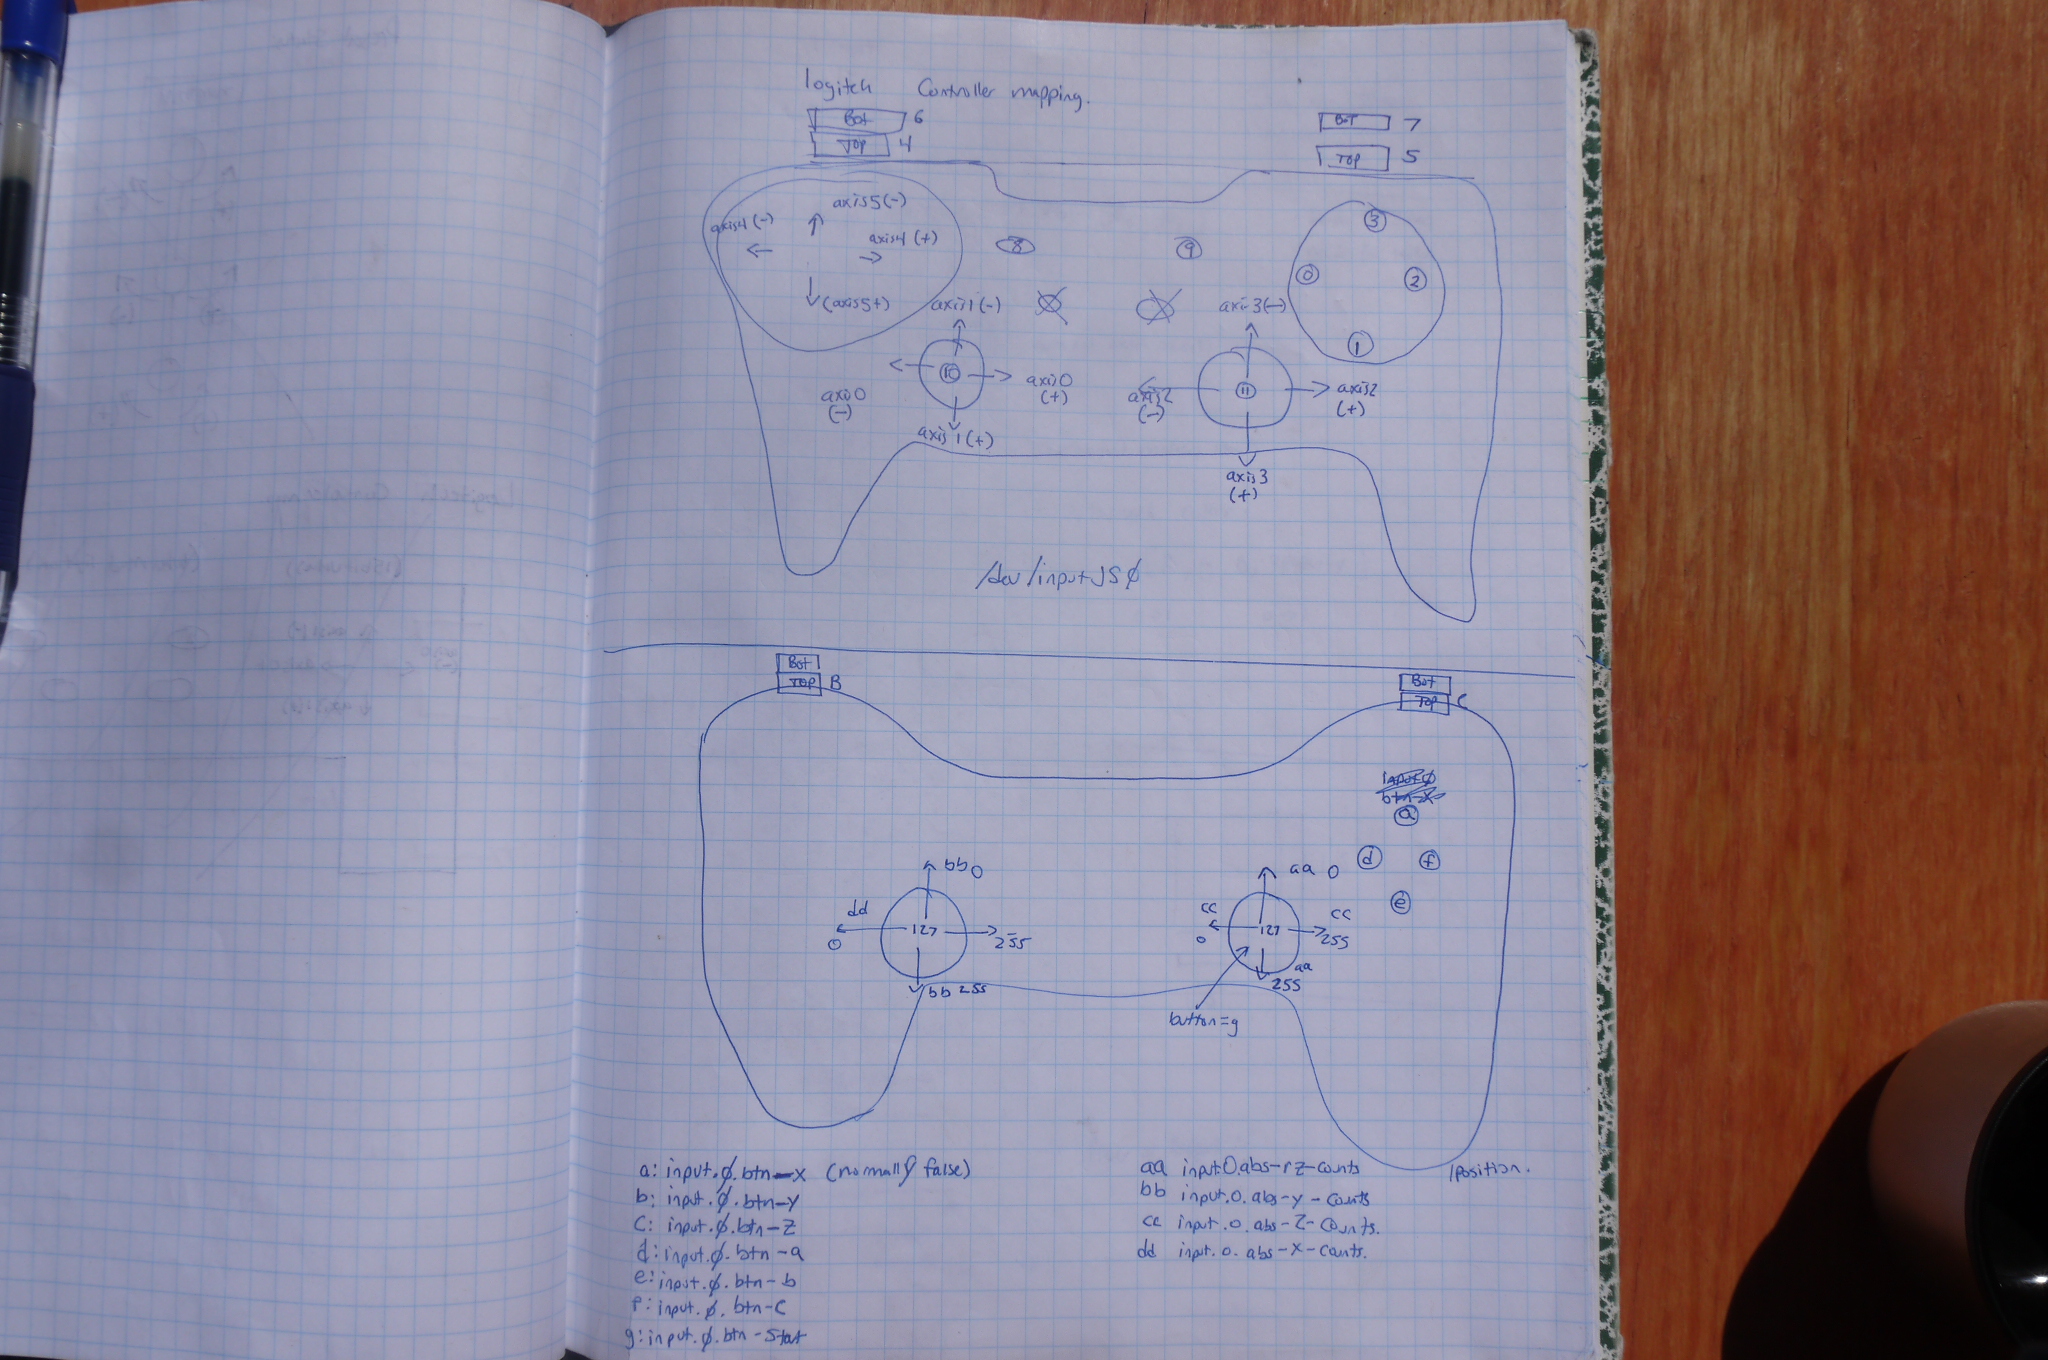 logitch Controller mapping.
Bot 6
Top 4
Bot 7
Top 5
axis5(-)
axis4(-)
axis4(+)
(axis5+)
8
9
3
0
2
1
axis1(-)
10
axis0
(-)
axis0
(+)
axis1(+)
axis3(-)
11
axis2
(-)
axis2
(+)
axis3
(+)
/dev/inputJSØ
Bot
Top B
Bot
Top C
inputØ
btn-x
a
d
f
e
bb 0
dd
0
127
255
bb 255
aa 0
cc
0
127
cc
255
aa
255
button=g
a: input.Ø.btn-x (normally false)
b: input.Ø.btn-y
C: input.Ø.btn-Z
d: input.Ø.btn-a
e: input.Ø.btn-b
f: input.Ø.btn-C
g: input.Ø.btn-Start
aa input0.abs-rz-counts /position.
bb input.0.abs-y-counts
cc input.0.abs-Z-counts.
dd input.0.abs-x-counts.